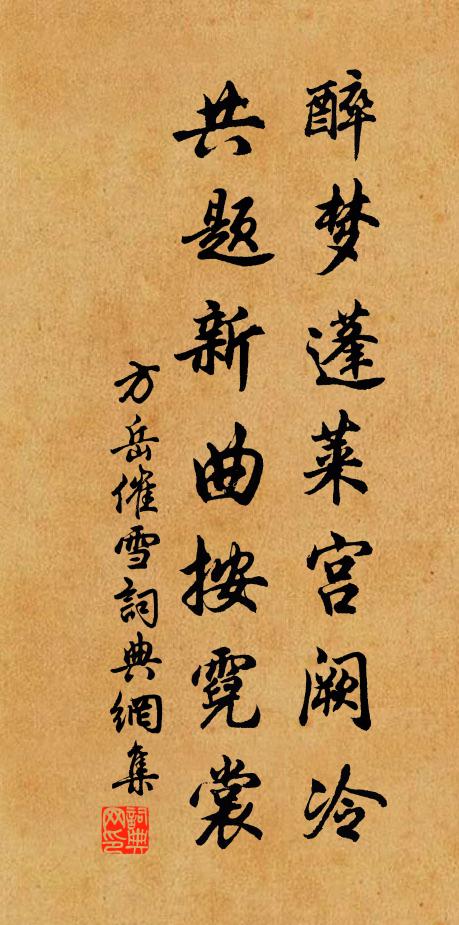 醉梦蓬莱宫阙冷
共题新曲按霓裳
方岳催雪詞典網集
詞典
网印